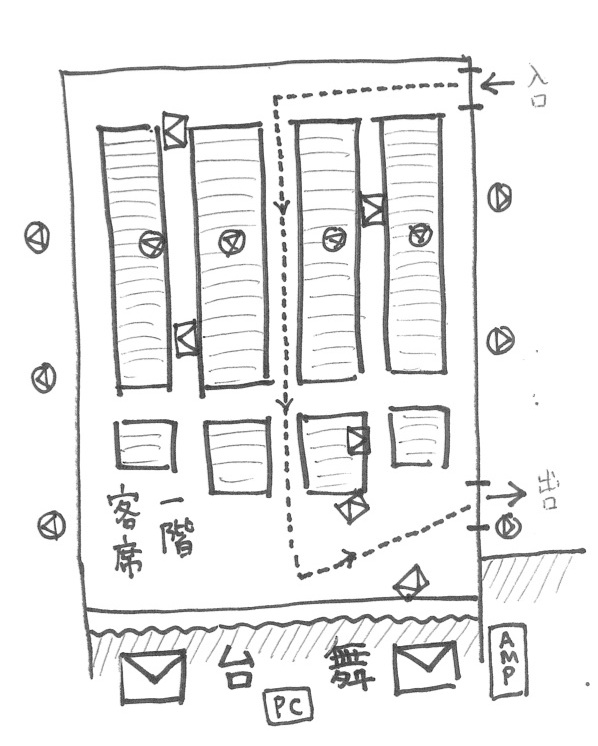 入口
出口
一階
客席
舞台
PC
AMP